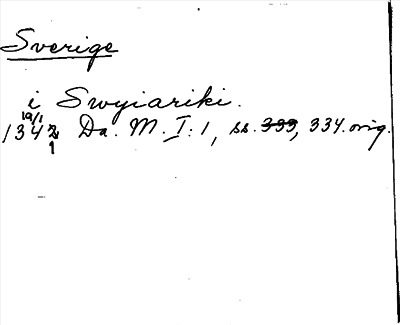 Sverige
i Swyiariki.
19/1
1342 Da. M. I: 1, ss. 333, 334. orig.
1